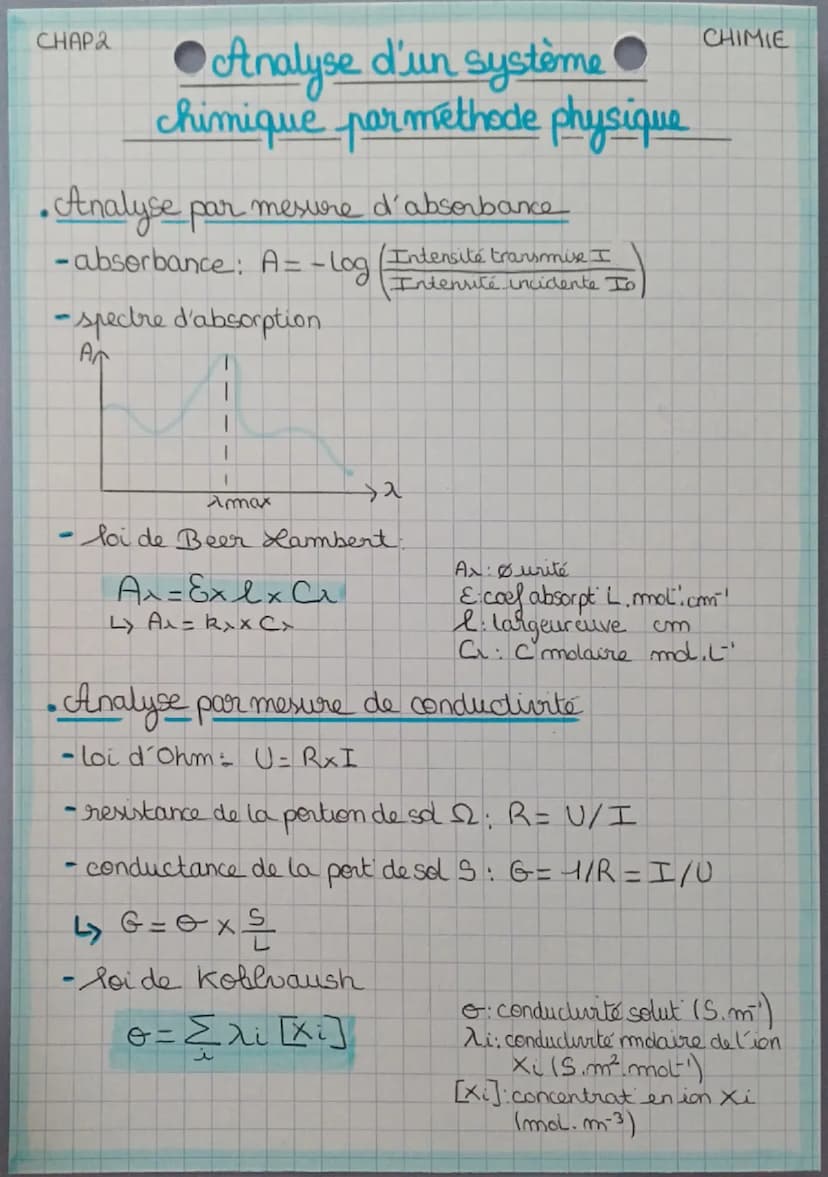 CHAP2
CHIMIE
Analyse d'un système
chimique par méthode physique
• Analyse par mesure d'absorbance
- absorbance : A = -log (Intensité transmise I / Intensité incidente I0)
- spectre d'absorption
A
λ
λmax
- loi de Beer Lambert :
Aλ = Ɛ x l x Cλ
↳ Aλ = kλ x Cλ
Aλ : ∅ unité
Ɛ : coef absorpt° L.mol⁻¹.cm⁻¹
l : largeur cuve cm
Cλ : C° molaire mol.L⁻¹
• Analyse par mesure de conductivité
- loi d'Ohm : U = R x I
- resistance de la portion de sol Ω : R = U/I
- conductance de la port° de sol S : G = 1/R = I/U
↳ G = σ x S/L
- loi de Kohlvaush
σ = Σi λi [Xi]
σ : conductivité solut° (S.m⁻¹)
λi : conductivité molaire de l'ion
Xi (S.m².mol⁻¹)
[Xi] : concentrat° en ion Xi
(mol.m⁻³)